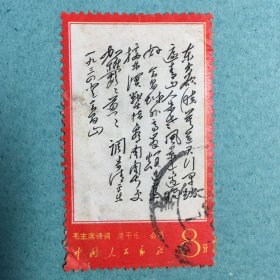 东方欲晓莫道君行早踏
遍青山人未老风景这边独
好会昌城外高峰颠连直
接东溟战士指看南粤更
加郁郁葱葱 调寄清平乐
一九三四年登山
毛主席诗词 清平乐·会昌
8分
中国人民邮政